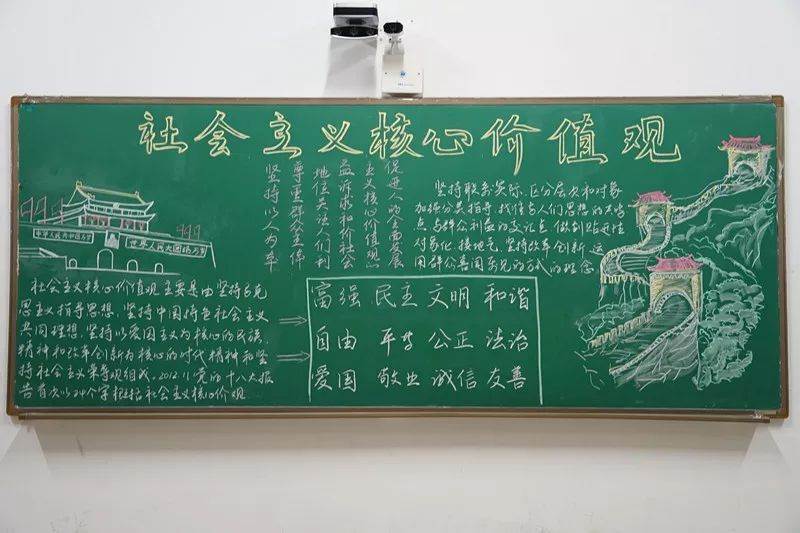 社会主义核心价值观
中华人民共和国万岁
世界人民大团结万岁
坚持以人为本
尊重群众主体
地位关注人们利
益诉求和价社会
主义核心价值观
促进人的全面发展
坚持联系实际,区分层次和对象
加强分类指导,找准与人们思想的共鸣
点与群众利益的交汇点,做到贴近性
对象化、接地气,坚持改革创新,运
用群众喜闻乐见的方式的理念
社会主义核心价值观主要是由坚持马克
思主义指导思想,坚持中国特色社会主义
共同理想,坚持以爱国主义为核心的民族
精神和改革创新为核心的时代精神和坚
持社会主义荣辱观组成,2012.11党的十八大报
告首次以24个字概括社会主义核心价观
富强 民主 文明 和谐
自由 平等 公正 法治
爱国 敬业 诚信 友善